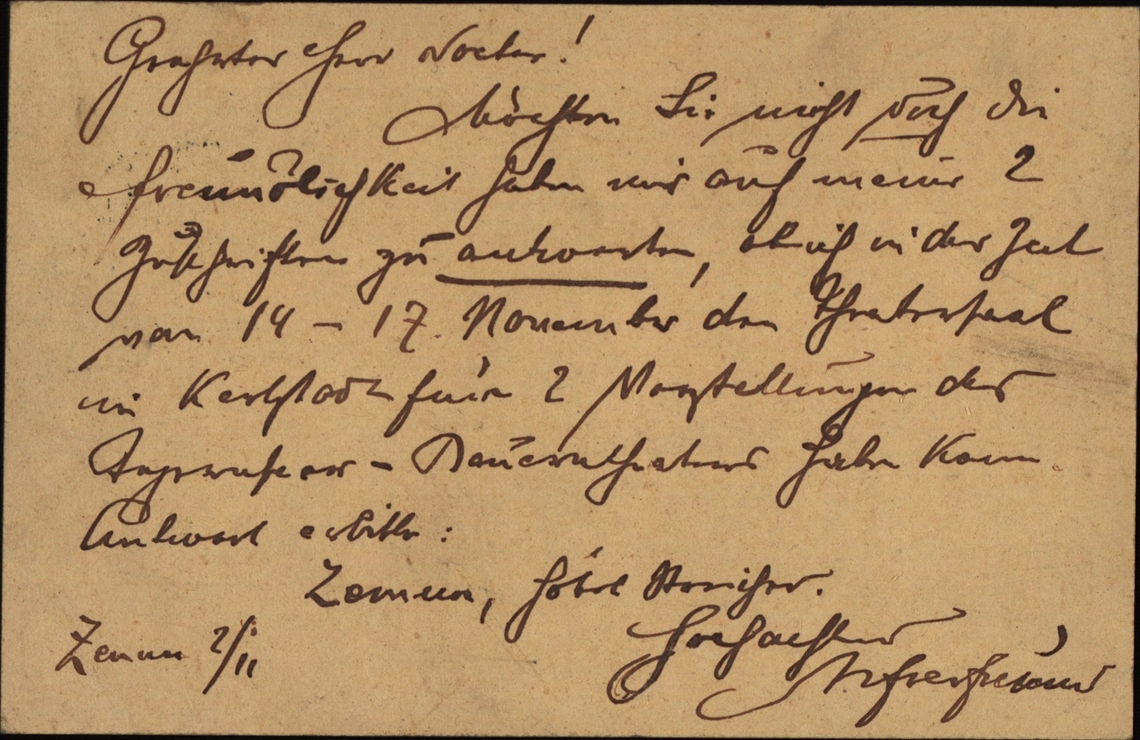 Geehrter Herr Doctor!
Möchten Sie nicht doch die
Freundlichkeit haben mir auf meine 2
Zuschriften zu antworten, ob ich in der Zeit
von 14 – 17. November den Theatersaal
in Karlstadt für 2 Vorstellungen des
Tegernseer – Bauerntheaters haben kann.
Antwort erbitte:
Zemun, Hôtel
Zemun 2/11
Hochachtend